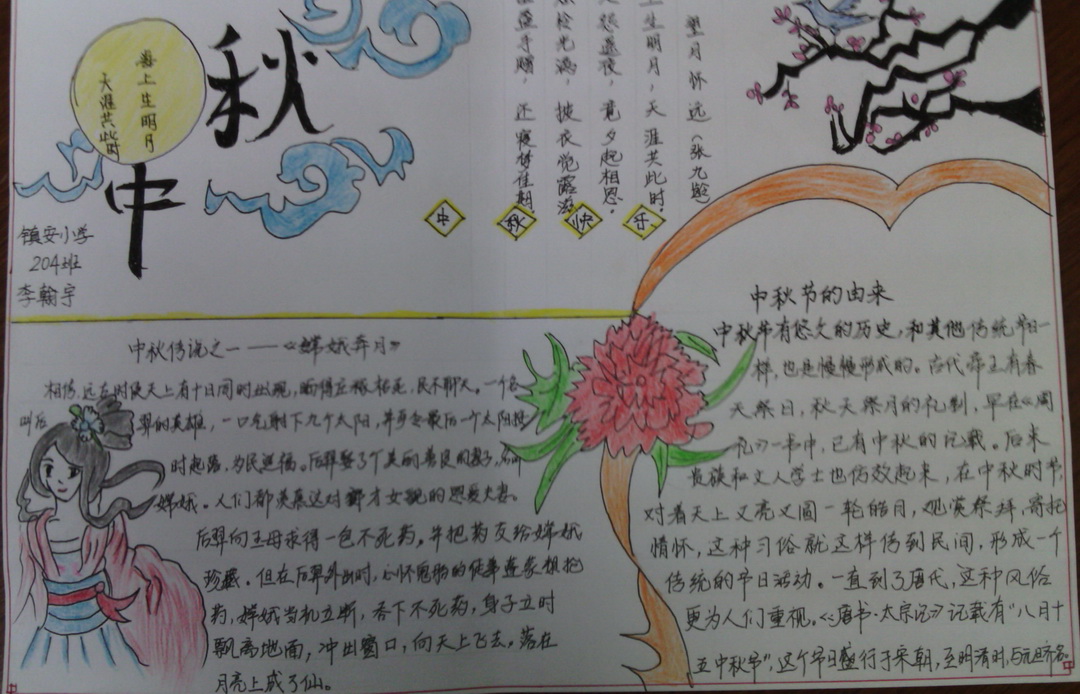 海上生明月
天涯共此时
秋
中
镇安小学
204班
李翰宇
望月怀远(张九龄)
上生明月，天涯共此时。
怨遥夜，竟夕起相思。
光满，披衣觉露滋。
手赠，还寝梦佳期。
中 秋 快 乐
中秋传说之一——《嫦娥奔月》
相传，远古时候天上有十日同时出现，晒得庄稼枯死，民不聊生。一个名
叫后羿的英雄，一口气射下九个太阳，并
时起落，为民造福。后羿娶了个美丽善良的妻子，名叫
嫦娥。人们都羡慕这对郎才女貌的恩爱夫妻。
后羿向王母求得一包不死药，并把药交给嫦娥
珍藏。但在后羿外出时，心怀鬼胎的
药，嫦娥当机立断，吞下不死药，身子立时
飘离地面，冲出窗口，向天上飞去。落在
月亮上成了仙。
中秋节的由来
中秋节有悠久的历史，和其他传统节日一
样，也是慢慢形成的。古代帝王有春
天祭日，秋天祭月的礼制，早在《周
礼》一书中，已有中秋的记载。后来
贵族和文人学士也仿效起来，在中秋时节，
对着天上又亮又圆一轮皓月，观赏祭拜，寄托
情怀，这种习俗就这样传到民间，形成一个
传统的节日活动。一直到了唐代，这种风俗
更为人们重视。《唐书·太宗记》记载有“八月十
五中秋节”，这个节日盛行于宋朝，至明清时，与元旦齐名